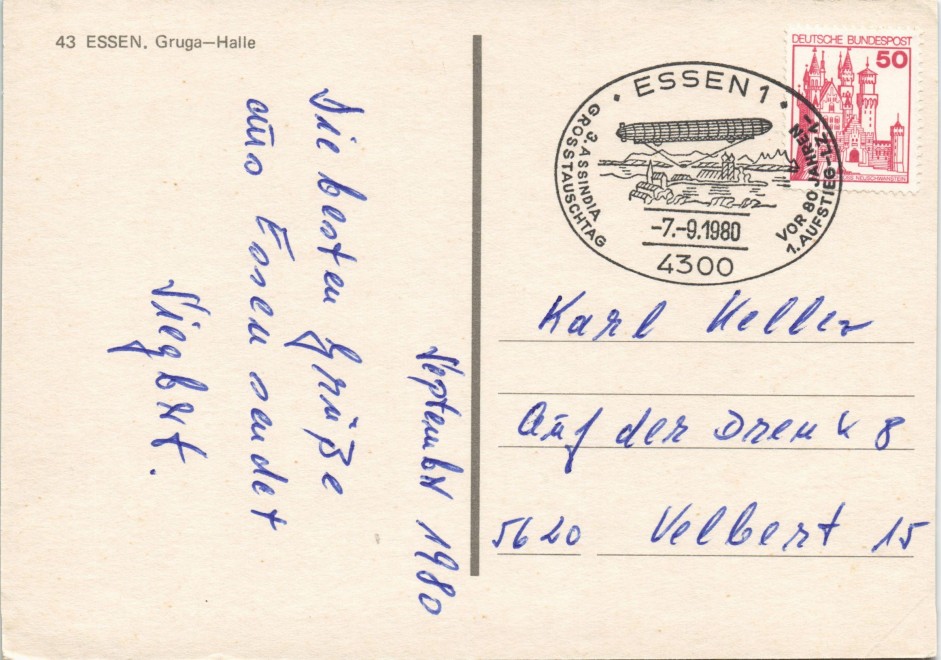 43 ESSEN. Gruga—Halle
September 1980
Die besten Grüße
aus Essen sendet
Siegbert.
DEUTSCHE BUNDESPOST
50
NEUSCHWANSTEIN
ESSEN 1
3. ASSINDIA
GROSSTAUSCHTAG
VOR 80 JAHREN
1. AUFSTIEG-LZ1-
-7.-9.1980
4300
Karl Keller
Auf der Drenk 8
5620 Velbert 15